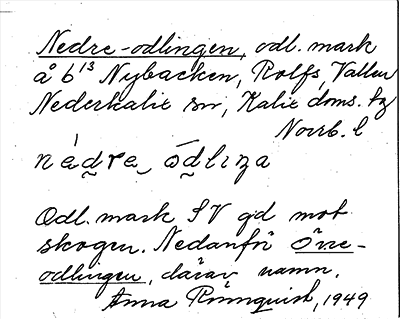 Nedre-odlingen, odl. mark
å b¹³ Nybacken, Rolfs, Vallen
Nederkalix sn, Kalix doms. tg
Norrb. l
nédre ódlıŋa
Odl. mark SV gd mot
skogen. Nedanför Övre-
odlingen, därav namn.
Anna Rönnquist, 1949